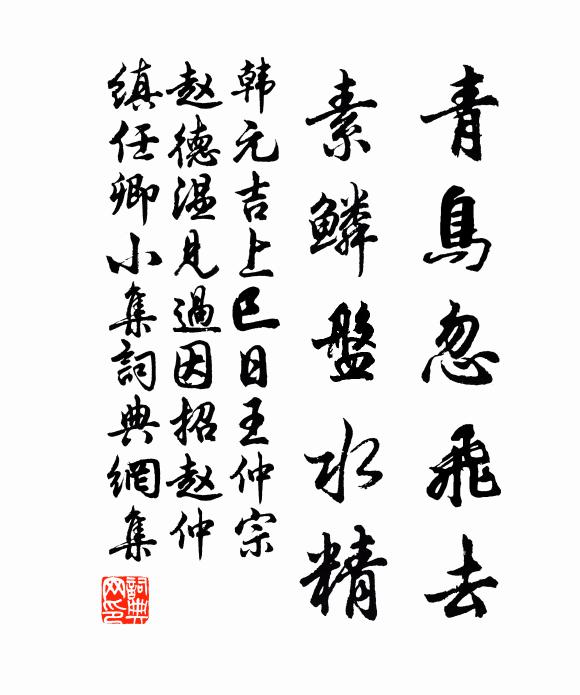 青鳥忽飛去
素鱗盤水精
韩元吉上巳日王仲宗
赵德温見過因招赵仲
縝任卿小集詞典網集
詞典网印